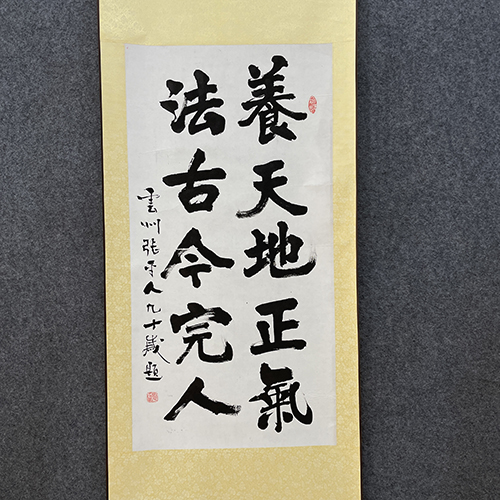 養天地正氣
法古今完人
雲州張平人九十歲題